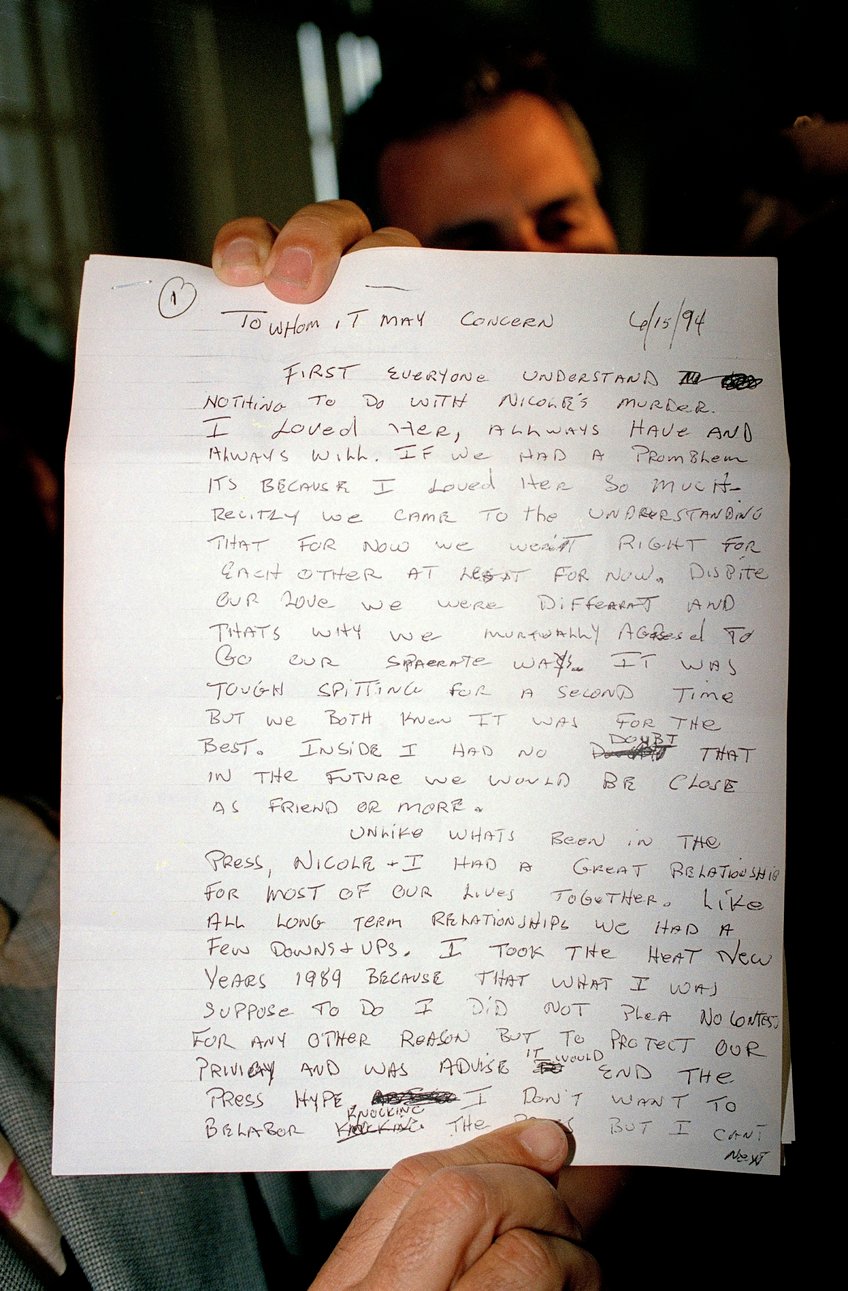 1
TO WHOM IT MAY CONCERN 6/15/94
FIRST EVERYONE UNDERSTAND
NOTHING TO DO WITH NICOLE'S MURDER.
I LOVED HER, ALLWAYS HAVE AND
ALWAYS WILL. IF WE HAD A PROMBLEM
ITS BECAUSE I LOVED HER SO MUCH.
RECITLY WE CAME TO THE UNDERSTANDING
THAT FOR NOW WE WEREN'T RIGHT FOR
EACH OTHER AT LEAST FOR NOW. DISPITE
OUR LOVE WE WERE DIFFERANT AND
THATS WHY WE MURTUALLY AGREED TO
GO OUR SPAERATE WAYS. IT WAS
TOUGH SPITTING FOR A SECOND TIME
BUT WE BOTH KNEW IT WAS FOR THE
BEST. INSIDE I HAD NO DOUBT THAT
IN THE FUTURE WE WOULD BE CLOSE
AS FRIEND OR MORE.
UNLIKE WHATS BEEN IN THE
PRESS, NICOLE + I HAD A GREAT RELATIONSHIP
FOR MOST OF OUR LIVES TOGETHER. LIKE
ALL LONG TERM RELATIONSHIPS WE HAD A
FEW DOWNS + UPS. I TOOK THE HEAT NEW
YEARS 1989 BECAUSE THAT WHAT I WAS
SUPPOSE TO DO I DID NOT PLEA NO CONTEST
FOR ANY OTHER REASON BUT TO PROTECT OUR
PRIVICY AND WAS ADVISE IT WOULD END THE
PRESS HYPE I DON'T WANT TO
BELABOR KNOCKING THE BUT I CANT
NEXT